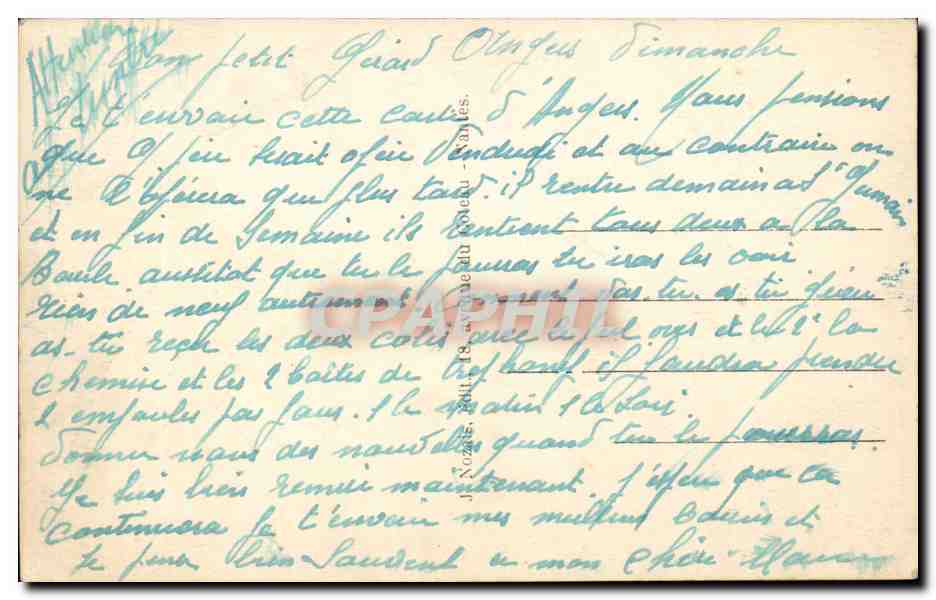 mon petit Gérard Angers dimanche
Je t'envoie cette carte d'Angers. Nous pensions
que serait opéré Vendredi et au contraire on
ne l'opérera que plus tard. il rentre demain a St
et en fin de Semaine ils rentrent tous deux a la
Baule aussitot que tu le pourras tu iras les voir
rien de neuf autrement comment vas-tu es tu guéri
as-tu reçu les deux colis avec le et le 2e la
chemise et les 2 boites de il faudra prendre
2 empoules par jour. 1 le matin 1 le soir.
donne nous des nouvelles quand tu le pourras
Je suis bien remise maintenant. J'espère que ca
continuera Je t'envoie mes meilleurs baisers et
Je pense bien Souvent a mon chéri Maman
J. Nozais, édit., 18, avenue du Coteau - Nantes.
CPAPHIL